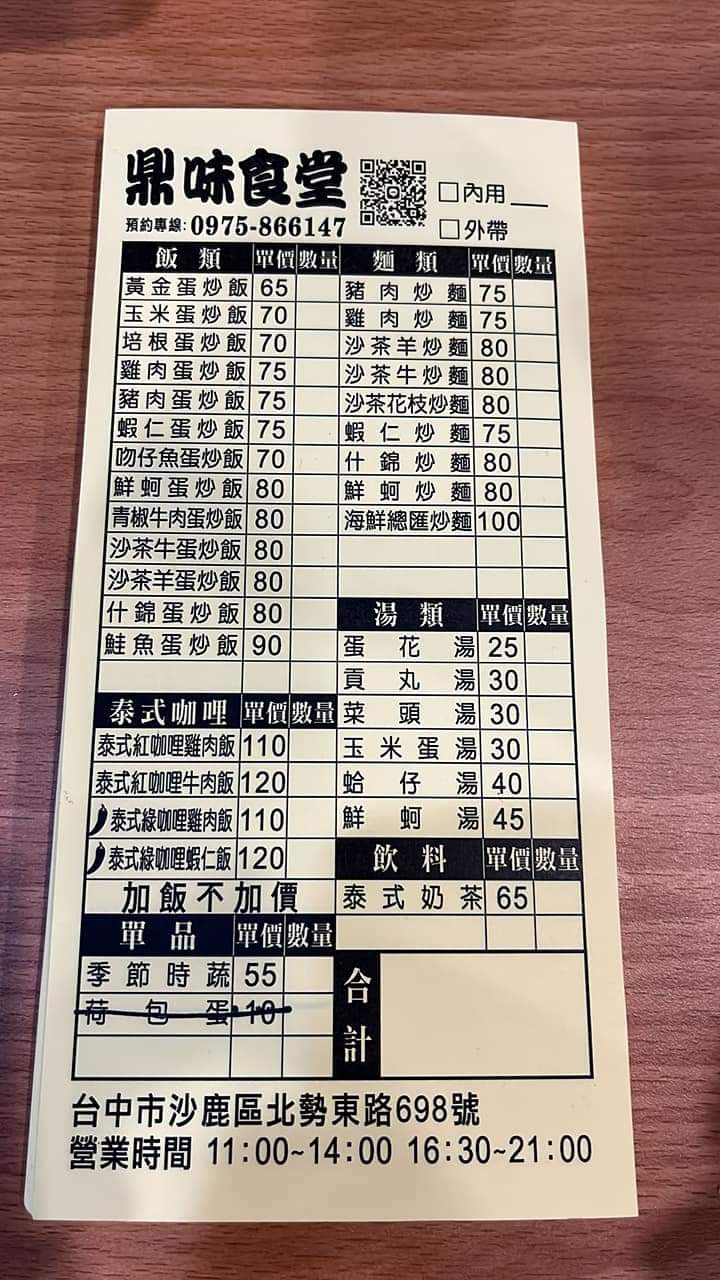 鼎味食堂
預約專線: 0975-866147
□內用___
□外帶
飯類 單價 數量
黃金蛋炒飯 65
玉米蛋炒飯 70
培根蛋炒飯 70
雞肉蛋炒飯 75
豬肉蛋炒飯 75
蝦仁蛋炒飯 75
吻仔魚蛋炒飯 70
鮮蚵蛋炒飯 80
青椒牛肉蛋炒飯 80
沙茶牛蛋炒飯 80
沙茶羊蛋炒飯 80
什錦蛋炒飯 80
鮭魚蛋炒飯 90
泰式咖哩 單價 數量
泰式紅咖哩雞肉飯 110
泰式紅咖哩牛肉飯 120
泰式綠咖哩雞肉飯 110
泰式綠咖哩蝦仁飯 120
加飯不加價
單品 單價 數量
季節時蔬 55
荷包蛋 10
麵類 單價 數量
豬肉炒麵 75
雞肉炒麵 75
沙茶羊炒麵 80
沙茶牛炒麵 80
沙茶花枝炒麵 80
蝦仁炒麵 75
什錦炒麵 80
鮮蚵炒麵 80
海鮮總匯炒麵 100
湯類 單價 數量
蛋花湯 25
貢丸湯 30
菜頭湯 30
玉米蛋湯 30
蛤仔湯 40
鮮蚵湯 45
飲料 單價 數量
泰式奶茶 65
合計
台中市沙鹿區北勢東路698號
營業時間 11:00~14:00 16:30~21:00